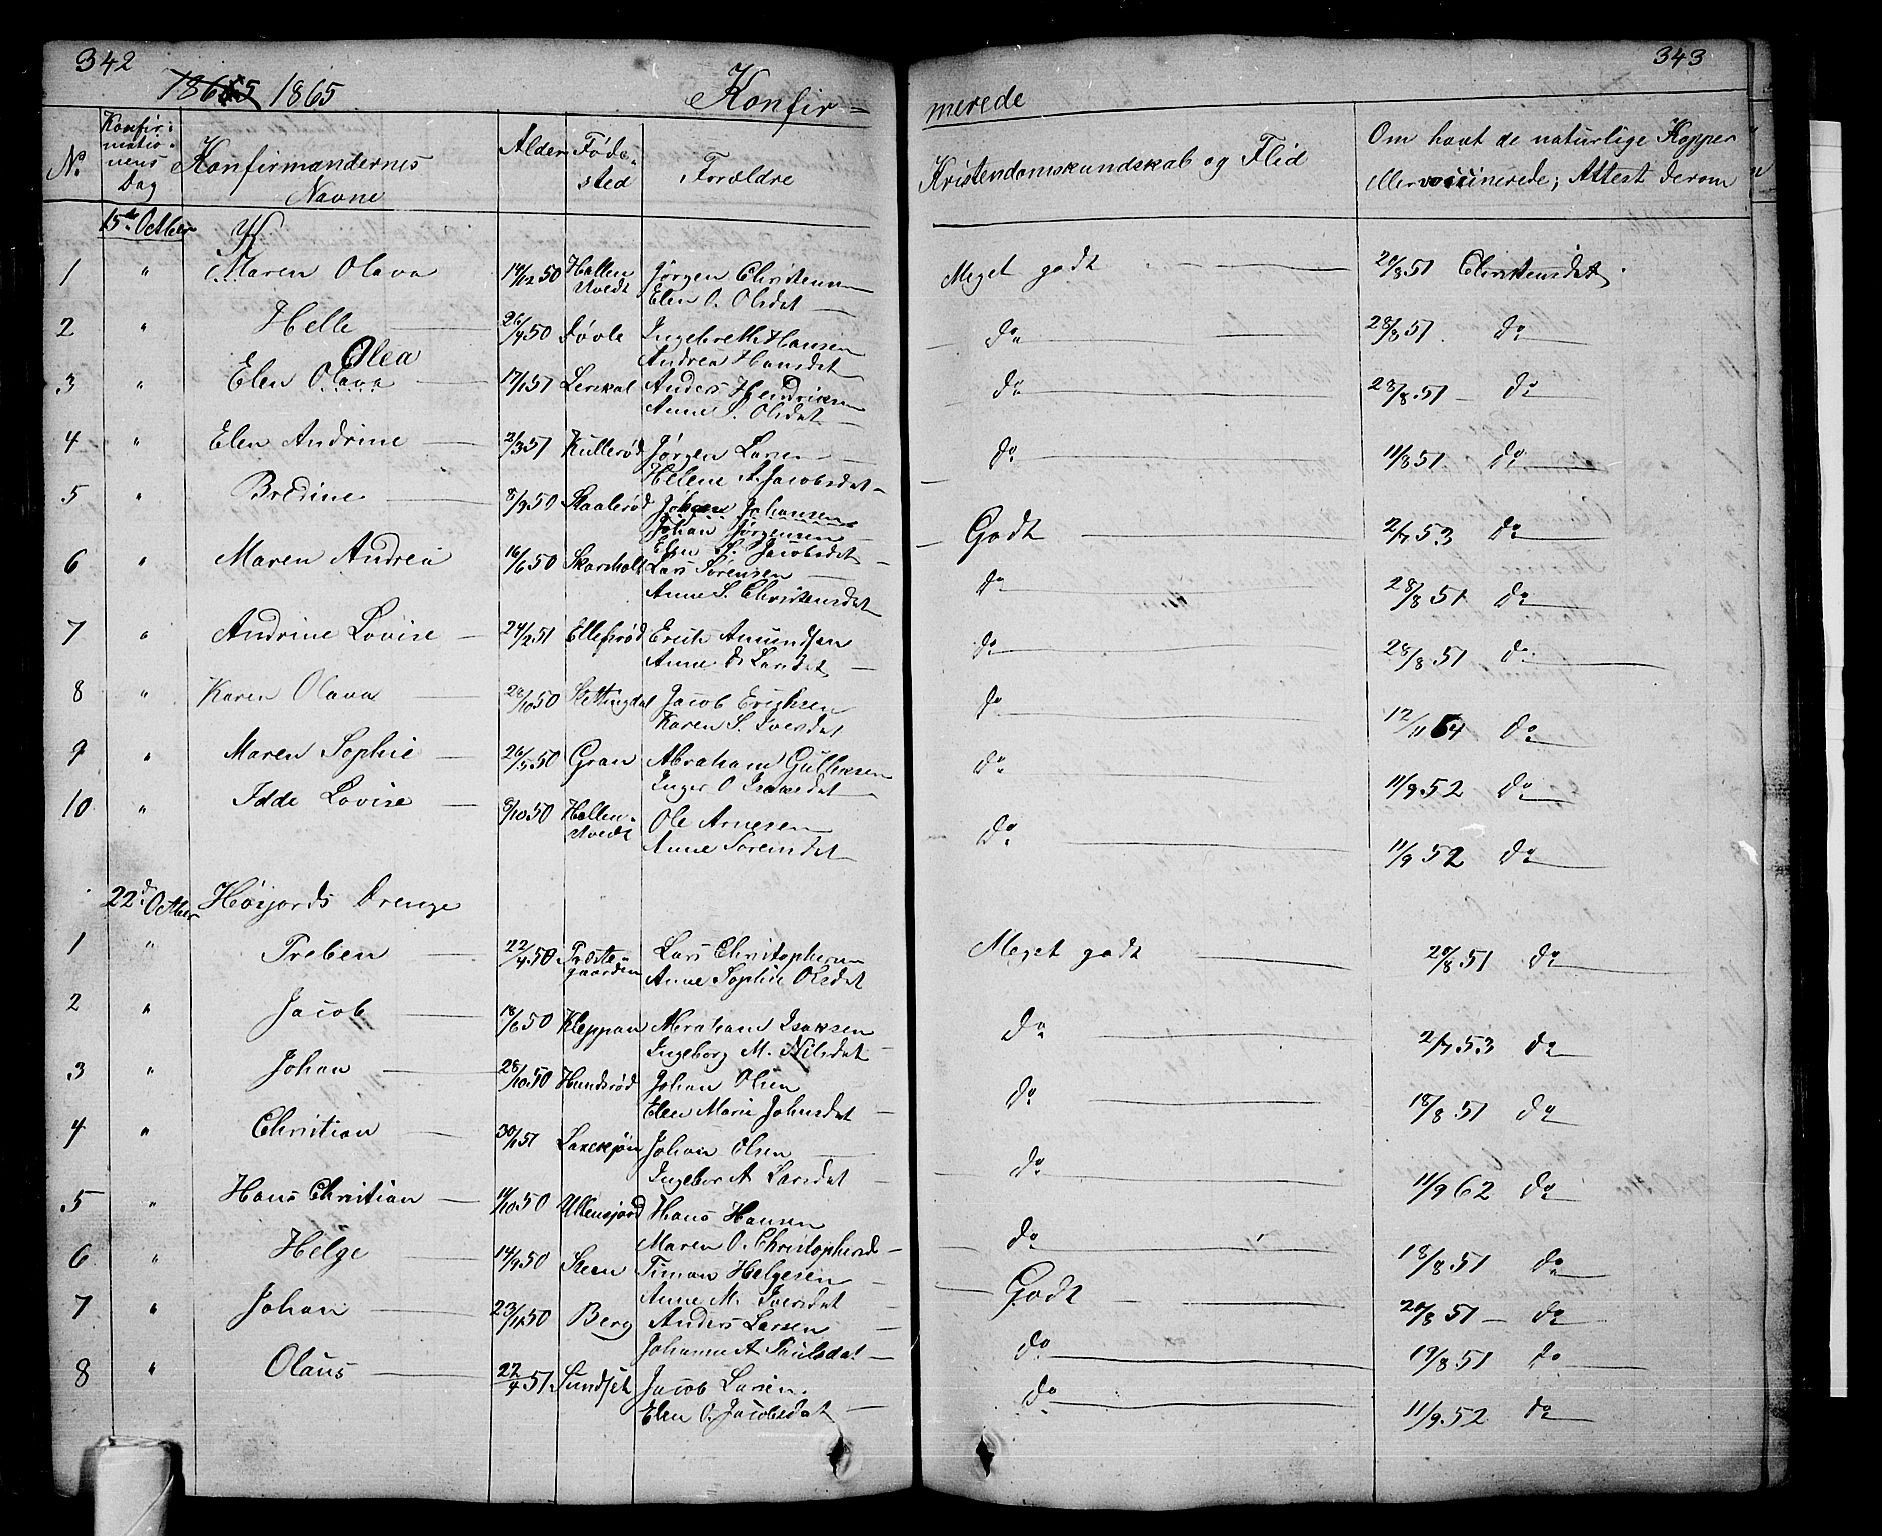 342
1865 Konfir=
No. Konfirmationens Dag Konfirmandernes Navne Alder Fødested Forældre
15de Octber
1 " Maren Olava 14/12 50 Hallen Jørgen Christensen
tvedt Elen O. Olsdat
2 " Helle 26/4 50 Døvle Ingebreth Hansen
Andrea Hansdat
Olea
3 " Elen Olava 17/1 51 Lerskal Anders Hendriksen
Anne S. Olsdat
4 " Elen Andrine 2/3 51 Kullerød Jørgen Larsen
Helene A. Jacobsdat
5 " Bredine 8/9 50 Skaalerød Johan Johansen
Johan Jørgensen
Elen S. Jacobsdat
6 " Maren Andrea 16/6 50 Skorsholt Lars Sørensen
Anne S. Christensdat
7 " Andrine Lovise 24/2 51 Ellefsrød Erich Amundsen
Anne D. Larsdat
8 " Karen Olava 28/10 50 Slettingdal Jacob Erichsen
Karen S. Iversdat
9 " Maren Sophie 26/5 50 Gran Abraham Gulliksen
Inger O. Isaksdat
10 " Idde Lovise 8/10 50 Hallen- Ole Arnesen
tvedt Anne Sørensdat
22d Octber Høijords Drenge
1 " Preben 22/4 50 Præste- Lars Christophersen
gaarden Anne Sophie Olsdat
2 " Jacob 18/6 50 Kleppan Abraham Isaksen
Ingeborg M. Nilsdat
3 " Johan 28/10 50 Hundsrød Johan Olsen
Elen Marie Johnsdat
4 " Christian 30/1 51 Johan Olsen
Ingebor A Larsdat
5 " Hans Christian 11/10 50 Hans Hansen
Maren O. Christophersd
6 " Helge 14/9 50 Steen Timan Helgesen
Anne M. Iversdat
7 " Johan 23/11 50 Berg Anders Larsen
Johanne A Paulsdat
8 " Olaus 22/4 51 Sundset Jacob Larsen
Elen O. Jacobsdat
343
merede
Kristendomskundskab og Flid Om havt de naturlige Kopper
eller vaccinerede; Attest derom
Meget godt 20/8 51 Christensdat
do 28/8 51. do
do 28/8. 51 do
do 11/8 51 do
Godt 2/7 53 do
do 28/8 51 do
do 28/8. 51 do
do 12/11 64 do
do 11/9. 52 do
do 11/9 52 do
Meget godt 20/8 51 do
do 2/7 53 do
do 18/8 51 do
do 11/9 62 do
do 18/8 51 do
Godt 20/8 51 do
do 19/8 51 do
do 11/9. 52 do